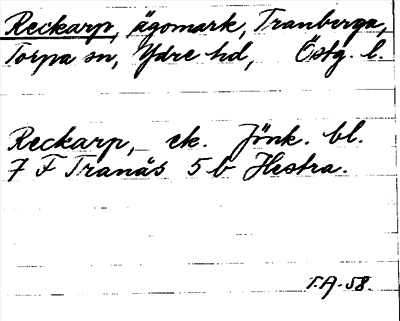 Reckarp, ägomark, Tranberga,
Torpa sn, Ydre hd, Östg. l.
Reckarp, ek. Jönk. bl.
7 F Tranås 5 b Hestra.
T.A-58.